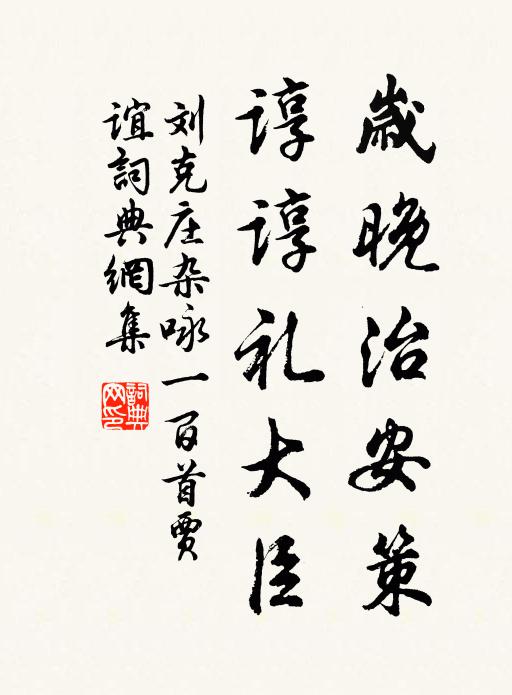 歲晚治安策
諄諄礼大臣
刘克庄杂咏一百首賈
誼詞典網集
詞典
网印